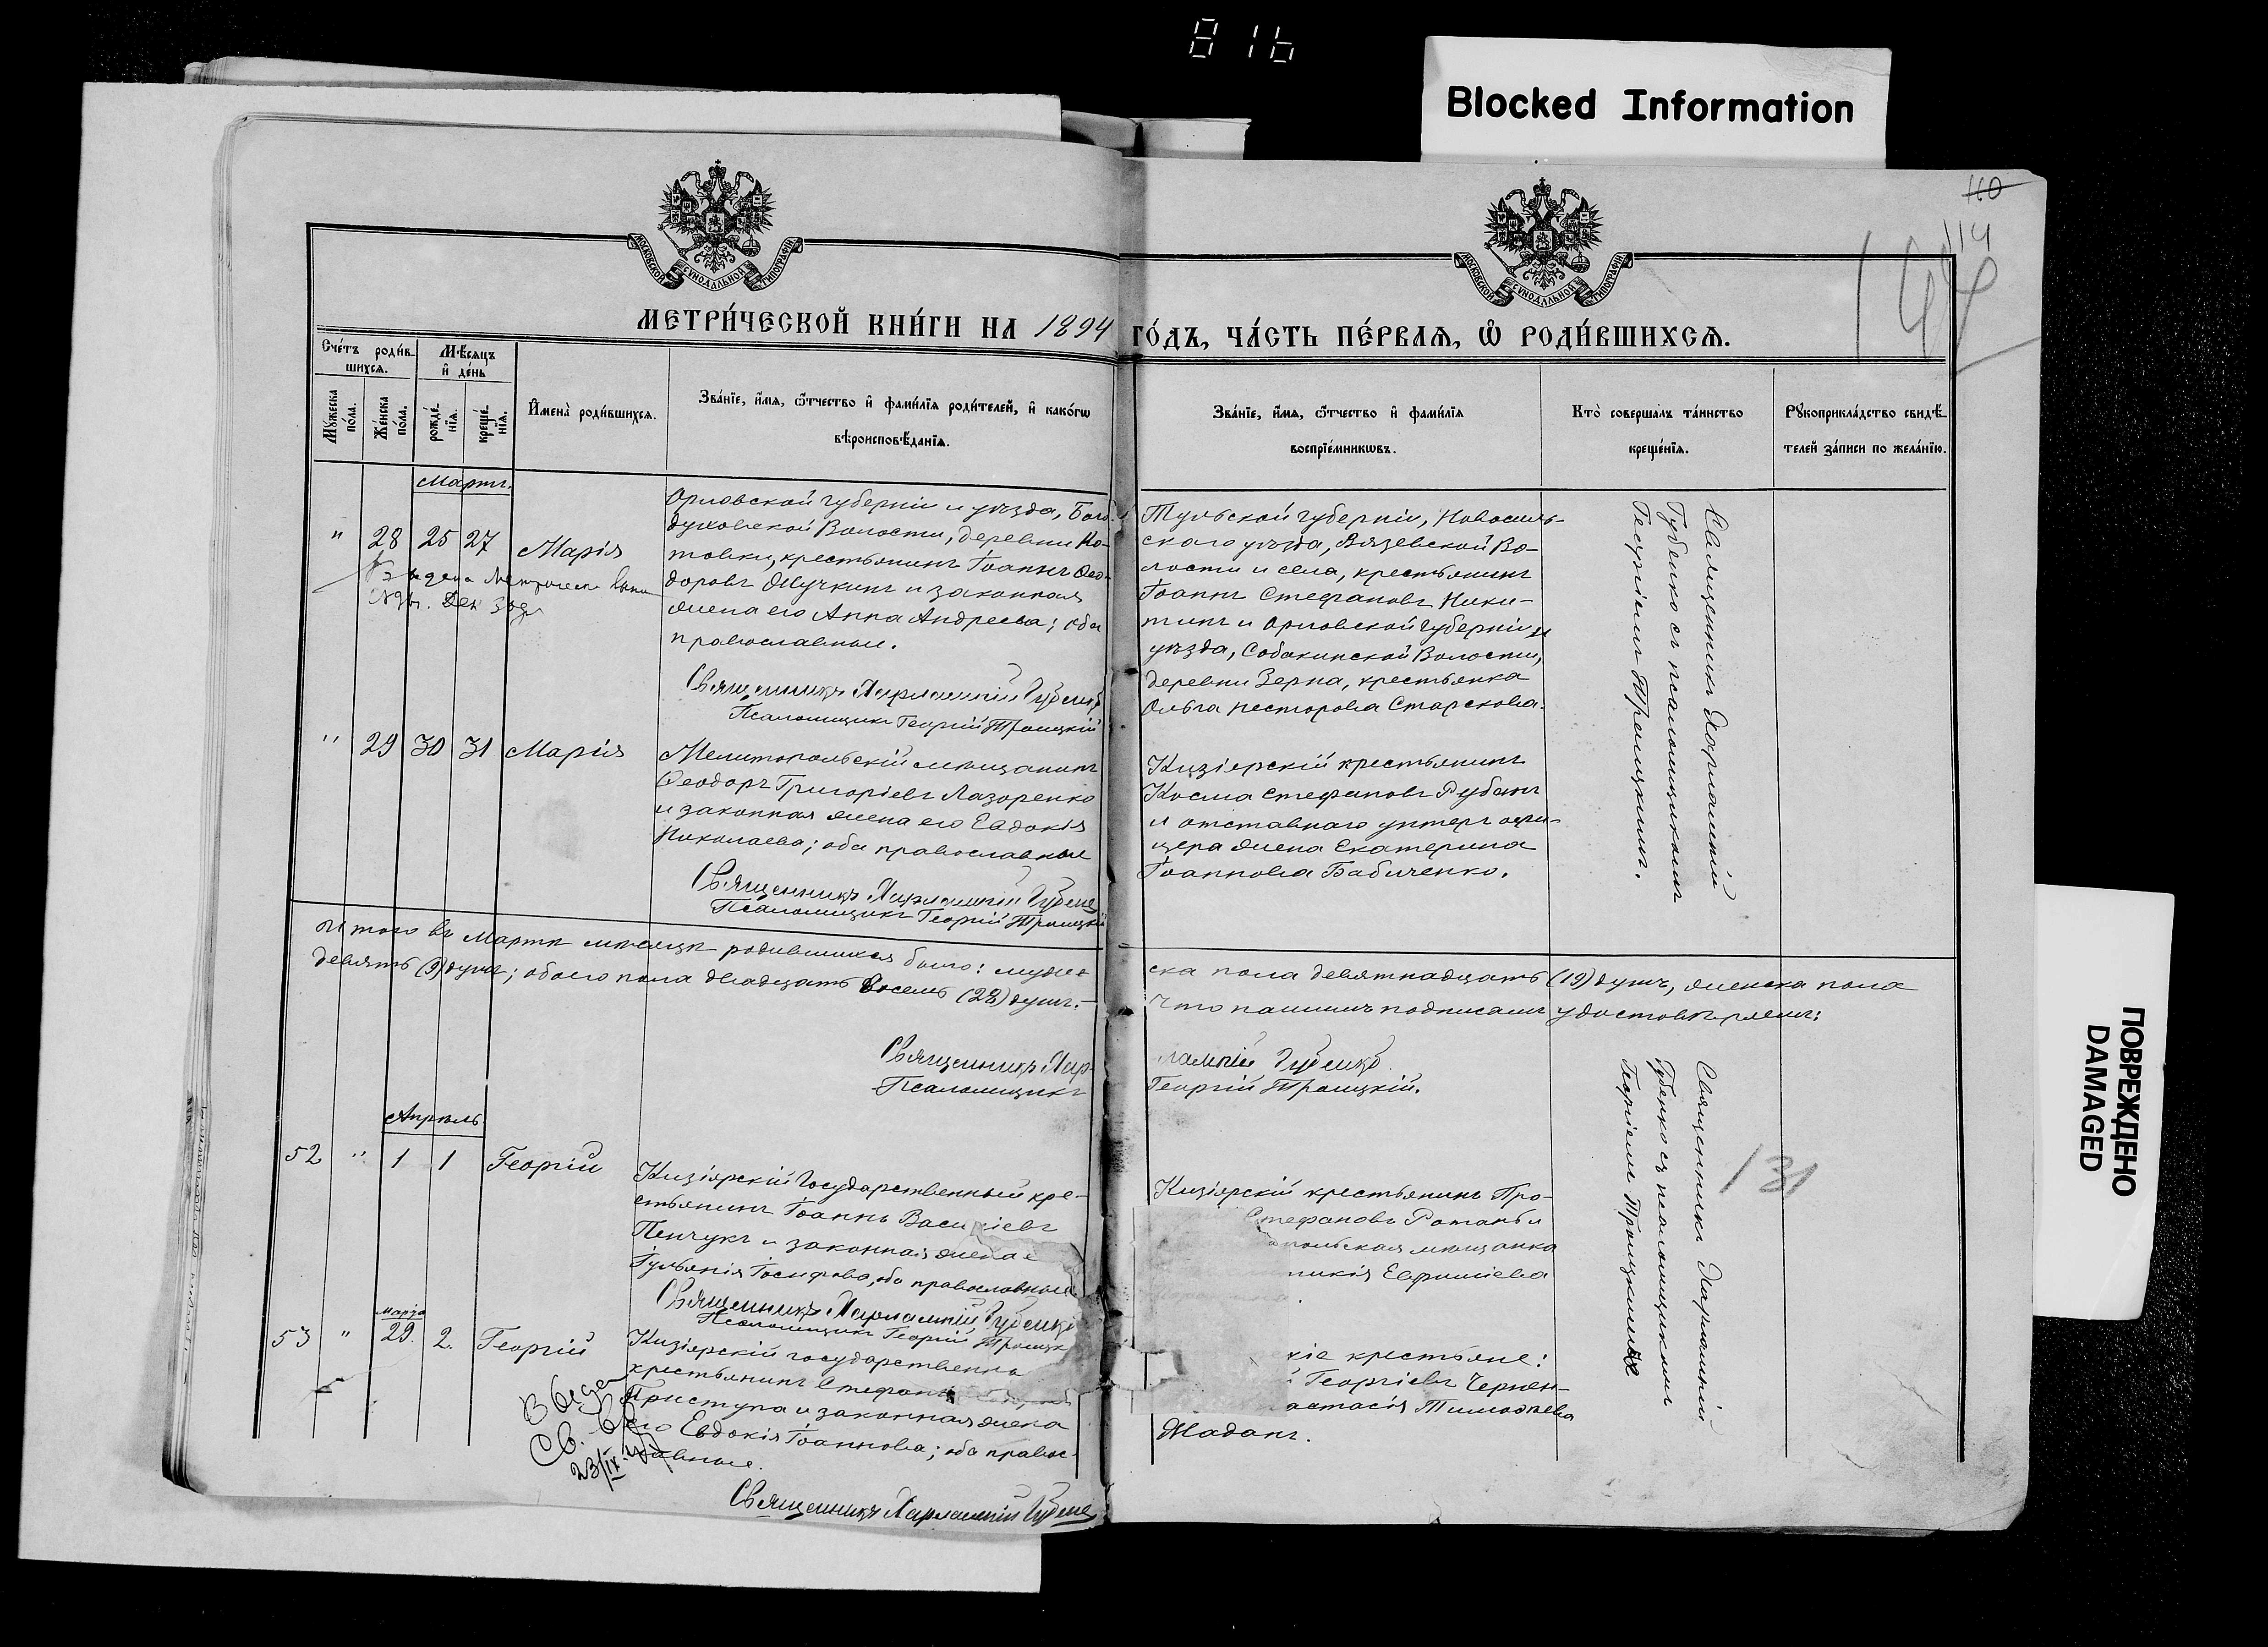 816
Blocked Information
110
114
МОСКОВСКОЙ СѴНОДАЛЬНОЙ ТИПОГРАФІИ
МОСКОВСКОЙ СѴНОДАЛЬНОЙ ТИПОГРАФІИ
МЕТРИ́ЧЕСКОЙ КНИ́ГИ НА 1894 ГО́ДЪ, ЧА́СТЬ ПЕ́РВАЯ, Ѡ РОДИ́ВШИХСЯ.
Сче́тъ роди́вшихся.
Му́жеска по́ла.
Же́нска по́ла.
Мѣ́сяцъ и де́нь
рожде́нїя.
креще́нїя.
Имена̀ роди́вшихся.
Зва́нїе, и́мя, ѻ́тчество и фами́лїя роди́телей, и како́гѡ
вѣроисповѣ́данїя.
Зва́нїе, и́мя, ѻ́тчество и фами́лїя
воспрїе́мникѡвъ.
Кто̀ соверша́лъ та́инство
креще́нїя.
Рꙋкоприкла́дство свидѣ́-
телей за́писи по жела́нїю.
Мартъ.
" 28 25 27 Марія
Орловской губерніи и уѣзда, Бого-
духовской Волости, деревни Ко-
товки, крестьянинъ Іоаннъ Ѳео-
доровъ Жучкинъ и законная
жена его Анна Андреева; оба
православные.
Священникъ Харлампій Губенко
Псаломщикъ Георгій Троицкій
Тульской губерніи, Новосиль-
скаго уѣзда, Вяжевской Во-
лости и села, крестьянинъ
Іоаннъ Стефановъ Ники-
тинъ и Орловской губерніи и
уѣзда, Собакинской Волости,
деревни Зерна, крестьянка
Ольга Несторова Старскова.
Священникъ Харлампій
Губенко съ псаломщикомъ
Георгіемъ Троицкимъ.
" 29 30 31 Марія
Мелитопольскій мѣщанинъ
Ѳеодоръ Григоріевъ Лазоренко
и законная жена его Евдокія
Николаева; оба православные
Священникъ Харлампій Губенко
Псаломщикъ Георгій Троицкій
Кизіярскій крестьянинъ
Косма Стефановъ Рубанъ
и отставнаго унтеръ офи-
цера жена Екатерина
Іоаннова Бабиченко.
Итого въ Мартѣ мѣсяцѣ родившихся было: муже- ска пола девятнадцать (19) душъ, женска пола
девять (9) душъ; обоего пола двадцать восемь (28) душъ.— Что нашимъ подписомъ удостовѣряемъ:
Священникъ Хар- лампій Губенко.
Псаломщикъ Георгій Троицкій.
Апрѣль
52 " 1 1 Георгій
Кизіярскій Государственный кре-
стьянинъ Іоаннъ Василіевъ
Пенчукъ и законная жена е
Іульянія Іосифова, оба православные
Священникъ Харлампій Губенко
Псаломщикъ Георгій Троицк
Кизіярскій крестьянинъ Про-
Стефановъ Ротань и
польская мѣщанка
никія Евфиміева
Священникъ Харлампій
Губенко съ псаломщикомъ
Георгіемъ Троицкимъ
131
Марта
53 " 29. 2. Георгій
Кизіярскій государственны
крестьянинъ Стефанъ
Приступа и законная жена
его Евдокія Іоаннова; оба правос-
лавные.
Священникъ Харлампій Губенк
кіе крестьяне:
Георгіевъ Чернен-
астасія Тимоѳѣева
Жаданъ.
23/IX
ПОВРЕЖДЕНО
DAMAGED